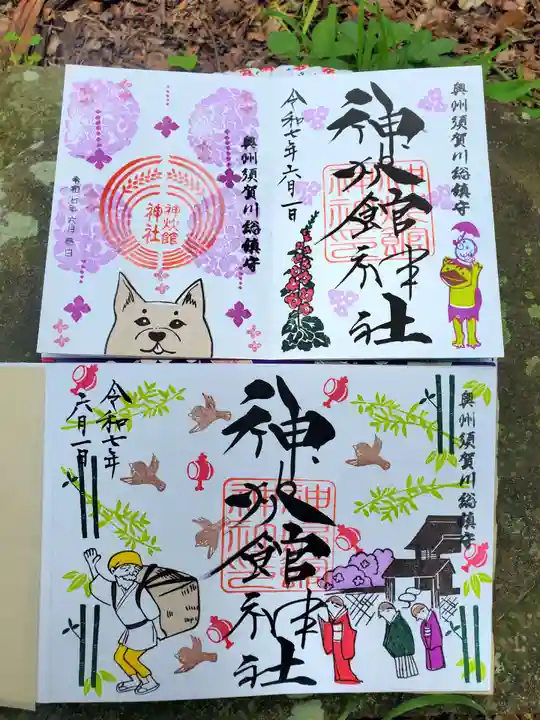 奥州須賀川総鎮守
神炊館神社
令和七年六月一日
奥州須賀川総鎮守
神炊館
神社
令和七年六月
奥州須賀川総鎮守
神炊館神社
令和七年
六月一日